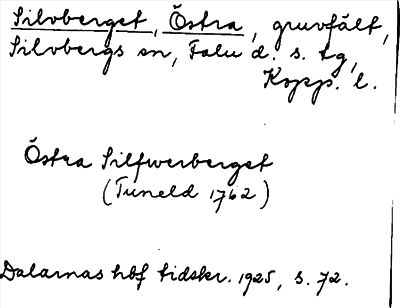 Silvberget, Östra, gruvfält,
Silvbergs sn, Falu d. s. tg,
Kopp. l.
Östra Silfwerberget
(Tuneld 1762)
Dalarnas hbf tidskr. 1925, s. 72.